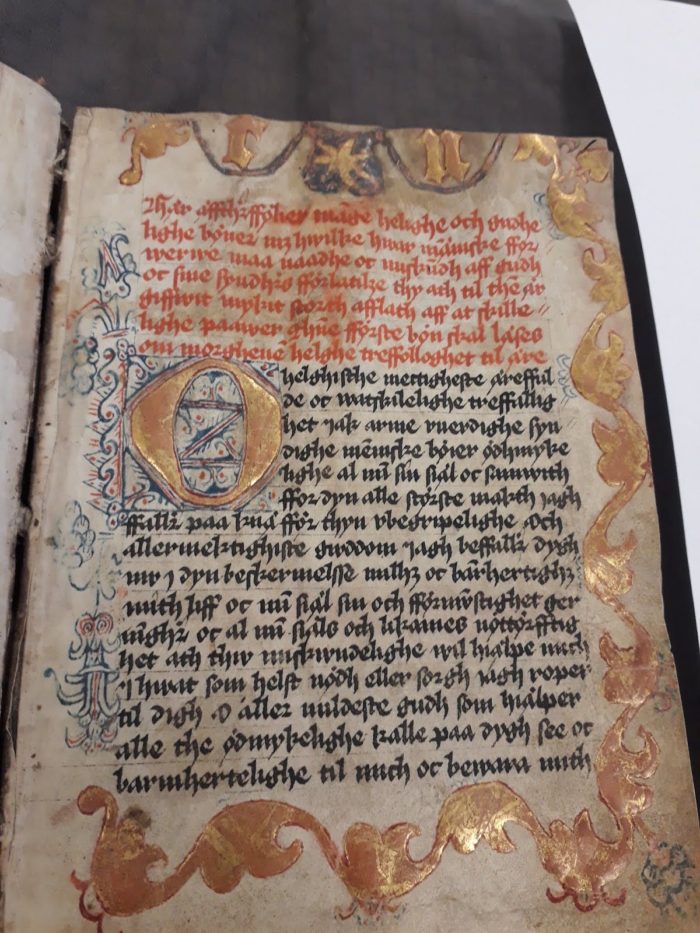 r n
Hær äffthrffölier mãge helighe och gudhe
lighe böner mz hwilke hwar mã̃niske för
werwe maa naadhe oc miskũdh aff gudh
oc sine syndhrs förlatilze thy ath til thẽ är
giffwit mykit storth afflath aff at skille
lighe paawer Thñe förste bön skal läses
om morghenẽ helghe treffolloghet til äre
O helghisthe mettigheste ärefful
de oc watskilelighe treffullig
het Jak arme vuerdighe syn
dighe mẽniske böier ödhmyke
lighe al mĩ sin siäl oc sanwith
ffor dyn alle största makth Jagh
ffallr paa knä för thyn vbegripelighe Och
allermektighiste guddom Jagh beffallr dygh
mr J dyn beskermelsse millz oc bãrhertighz
mith liff oc mĩ siäl sin och förnwstighet ger
nĩghr oc al mĩ siäls och likames nöttörfftig
het ath thw miskwndelighe wil hiälpe mich
J hwat som helst nödh eller sorgh Jagh roper
til digh O aller mildeste gudh som hiälper
alle the ödmykelighe kalle paa dygh see oc
barmhertelighe til mich oc bewara mith